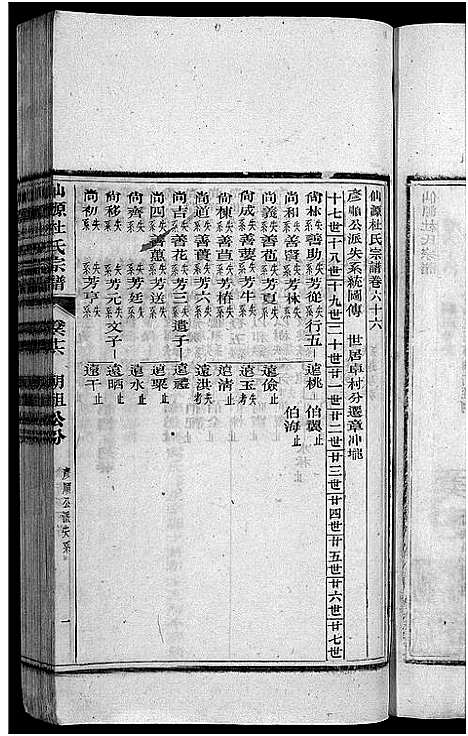 仙源杜氏宗譜卷六十六
彥順公派失系統圖傳　世居卓村分遷章冲壠
十七世十八世十九世二十世廿一世廿二世廿三世廿四世廿五世廿六世廿七世
尚林失系善助失系芳從行五遠桃伯鳳止
伯海止
尚和失系善賢失系芳林
尚義失系善苞失系芳夏失系遠儉止
尚成失系善蓼失系芳牛失系遠玉考
尚棟失系善苴失系芳椿失系遠清止
尚道失系善賓失系芳六失系遠洪考
尚吉失系善花失系芳三遺子遠禮
尚四失系善蕙失系芳送失系遠聚止
尚齊失系　失系芳廷失系遠永止
尚移失系　失系芳元文子遠晒止
尚初失系　失系芳亨失系遠干止
仙源杜氏宗譜
卷六十六
明祖公分
彥順公派失系
一
仙源杜氏宗譜